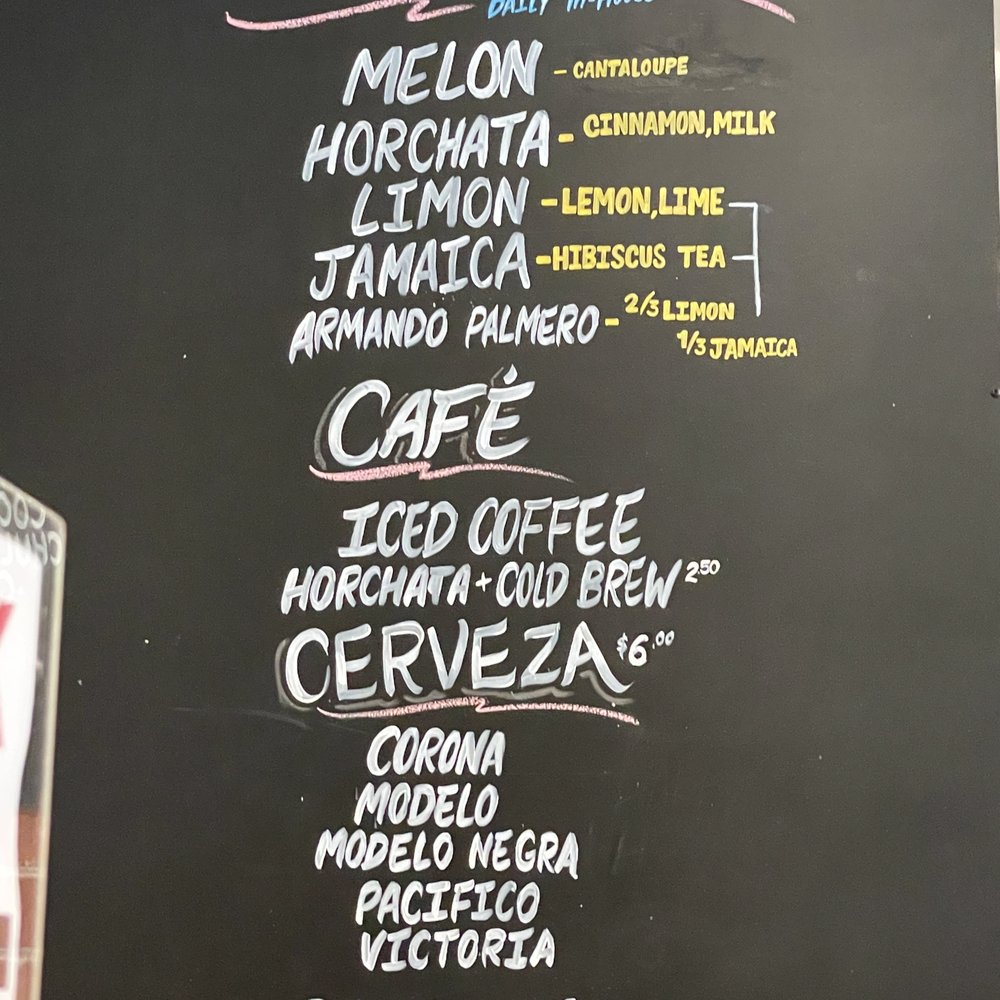 DAILY
MELON - CANTALOUPE
HORCHATA - CINNAMON, MILK
LIMON - LEMON, LIME
JAMAICA - HIBISCUS TEA
ARMANDO PALMERO - 2/3 LIMON
1/3 JAMAICA
CAFÉ
ICED COFFEE
HORCHATA + COLD BREW 2.50
CERVEZA $6.00
CORONA
MODELO
MODELO NEGRA
PACIFICO
VICTORIA